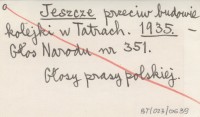 Jeszcze przeciw budowie
kolejki w Tatrach. 1935. –
Głos Narodu nr 351.
Głosy prasy polskiej.